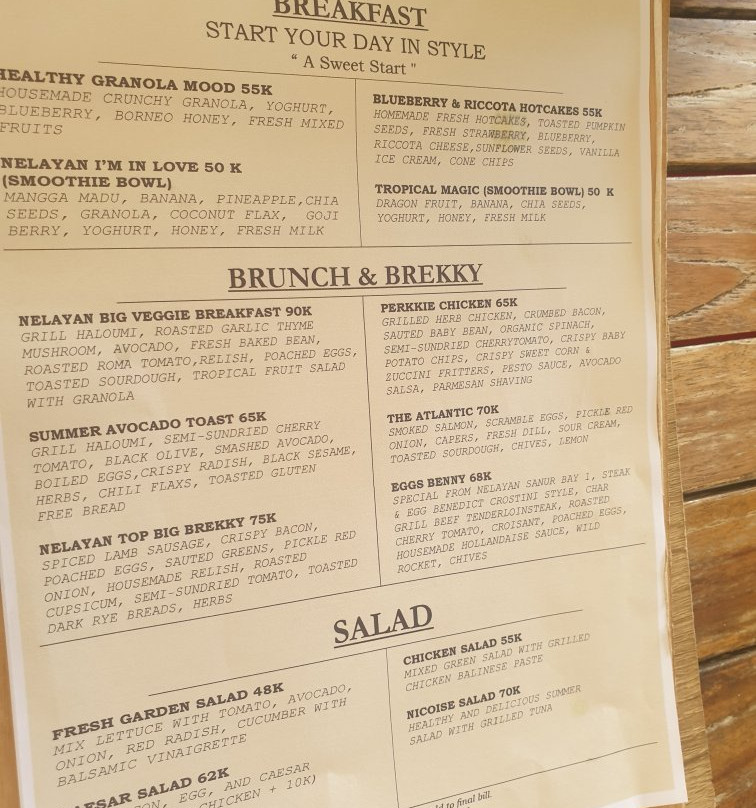 BREAKFAST
START YOUR DAY IN STYLE
" A Sweet Start "
HEALTHY GRANOLA MOOD 55K
HOUSEMADE CRUNCHY GRANOLA, YOGHURT,
BLUEBERRY, BORNEO HONEY, FRESH MIXED
FRUITS
NELAYAN I'M IN LOVE 50 K
(SMOOTHIE BOWL)
MANGGA MADU, BANANA, PINEAPPLE,CHIA
SEEDS, GRANOLA, COCONUT FLAX, GOJI
BERRY, YOGHURT, HONEY, FRESH MILK
BLUEBERRY & RICCOTA HOTCAKES 55K
HOMEMADE FRESH HOTCAKES, TOASTED PUMPKIN
SEEDS, FRESH STRAWBERRY, BLUEBERRY,
RICCOTA CHEESE,SUNFLOWER SEEDS, VANILLA
ICE CREAM, CONE CHIPS
TROPICAL MAGIC (SMOOTHIE BOWL) 50 K
DRAGON FRUIT, BANANA, CHIA SEEDS,
YOGHURT, HONEY, FRESH MILK
BRUNCH & BREKKY
NELAYAN BIG VEGGIE BREAKFAST 90K
GRILL HALOUMI, ROASTED GARLIC THYME
MUSHROOM, AVOCADO, FRESH BAKED BEAN,
ROASTED ROMA TOMATO,RELISH, POACHED EGGS,
TOASTED SOURDOUGH, TROPICAL FRUIT SALAD
WITH GRANOLA
SUMMER AVOCADO TOAST 65K
GRILL HALOUMI, SEMI-SUNDRIED CHERRY
TOMATO, BLACK OLIVE, SMASHED AVOCADO,
BOILED EGGS,CRISPY RADISH, BLACK SESAME,
HERBS, CHILI FLAXS, TOASTED GLUTEN
FREE BREAD
NELAYAN TOP BIG BREKKY 75K
SPICED LAMB SAUSAGE, CRISPY BACON,
POACHED EGGS, SAUTED GREENS, PICKLE RED
ONION, HOUSEMADE RELISH, ROASTED
CUPSICUM, SEMI-SUNDRIED TOMATO, TOASTED
DARK RYE BREADS, HERBS
PERKKIE CHICKEN 65K
GRILLED HERB CHICKEN, CRUMBED BACON,
SAUTED BABY BEAN, ORGANIC SPINACH,
SEMI-SUNDRIED CHERRYTOMATO, CRISPY BABY
POTATO CHIPS, CRISPY SWEET CORN &
ZUCCINI FRITTERS, PESTO SAUCE, AVOCADO
SALSA, PARMESAN SHAVING
THE ATLANTIC 70K
SMOKED SALMON, SCRAMBLE EGGS, PICKLE RED
ONION, CAPERS, FRESH DILL, SOUR CREAM,
TOASTED SOURDOUGH, CHIVES, LEMON
EGGS BENNY 68K
SPECIAL FROM NELAYAN SANUR BAY 1, STEAK
& EGG BENEDICT CROSTINI STYLE, CHAR
GRILL BEEF TENDERLOINSTEAK, ROASTED
CHERRY TOMATO, CROISANT, POACHED EGGS,
HOUSEMADE HOLLANDAISE SAUCE, WILD
ROCKET, CHIVES
SALAD
FRESH GARDEN SALAD 48K
MIX LETTUCE WITH TOMATO, AVOCADO,
ONION, RED RADISH, CUCUMBER WITH
BALSAMIC VINAIGRETTE
SALAD 62K
EGG, AND CAESAR
CHICKEN + 10K)
CHICKEN SALAD 55K
MIXED GREEN SALAD WITH GRILLED
CHICKEN BALINESE PASTE
NICOISE SALAD 70K
HEALTHY AND DELICIOUS SUMMER
SALAD WITH GRILLED TUNA
to final bill.